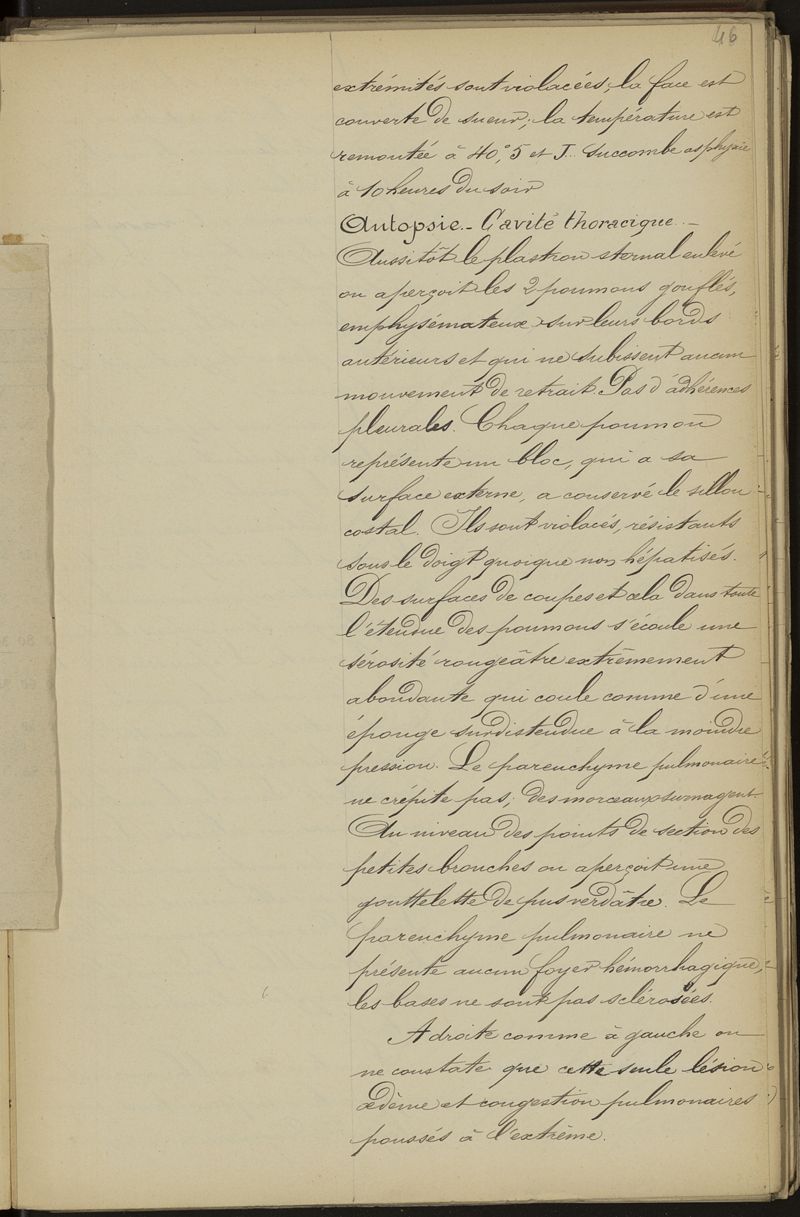 46
extrémités sont violacées; la face est
couverte de sueur; la température est
remontée à 40°,5 et J... succombe asphyxié
à 10 heures du soir
Autopsie. - Cavité thoracique. -
Aussitôt le plastron sternal enlevé
on aperçoit les 2 poumons gonflés,
emphysémateux sur leurs bords
antérieurs et qui ne subissent aucun
mouvement de retrait. Pas d'adhérences
pleurales. Chaque poumon
représente un bloc, qui a sa
surface externe, a conservé le sillon
costal. Ils sont violacés, résistants
sous le doigt quoique non hépatisés.
Des surfaces de coupes et cela dans toute
l'étendue des poumons s'écoule une
sérosité rougeâtre extrêmement
abondante qui coule comme d'une
éponge surdistendue à la moindre
pression. Le parenchyme pulmonaire
ne crépite pas; des morceaux surnagent.
Au niveau des points de section des
petites bronches on aperçoit une
gouttelette de pus verdâtre. Le
parenchyme pulmonaire ne
présente aucun foyer hémorrhagique,
les bases ne sont pas sclérosées.
A droite comme à gauche on
ne constate que cette seule lésion
œdème et congestion pulmonaires
poussés à l'extrême.